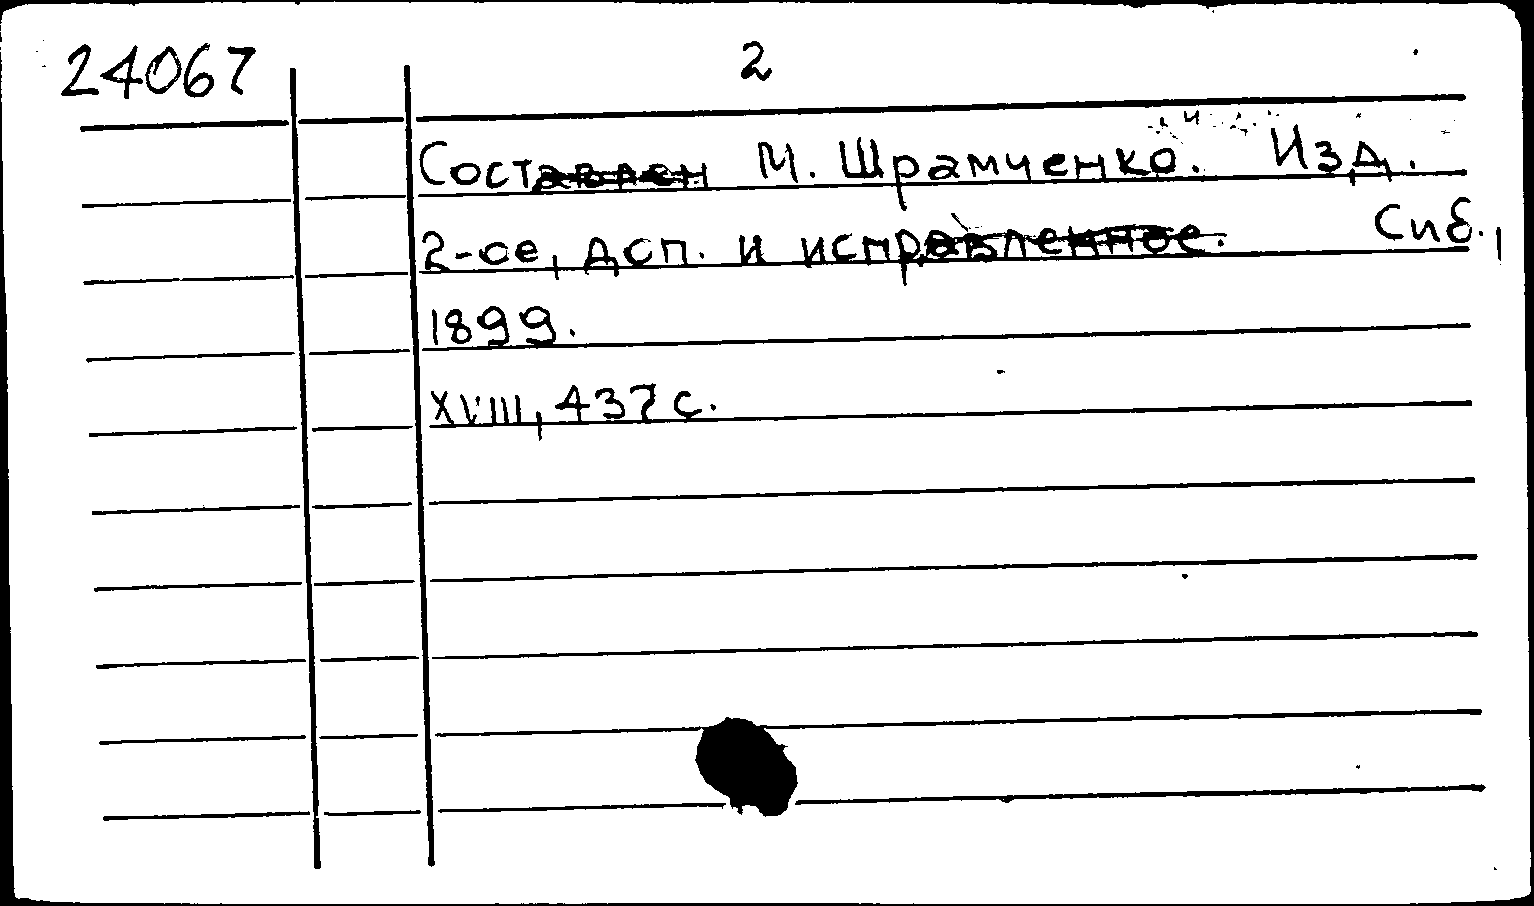 24067 2
Составлен М. Шрамченко. Изд.
2-ое, доп. и исправленное. Спб.,
1899.
XVIII, 437 с.